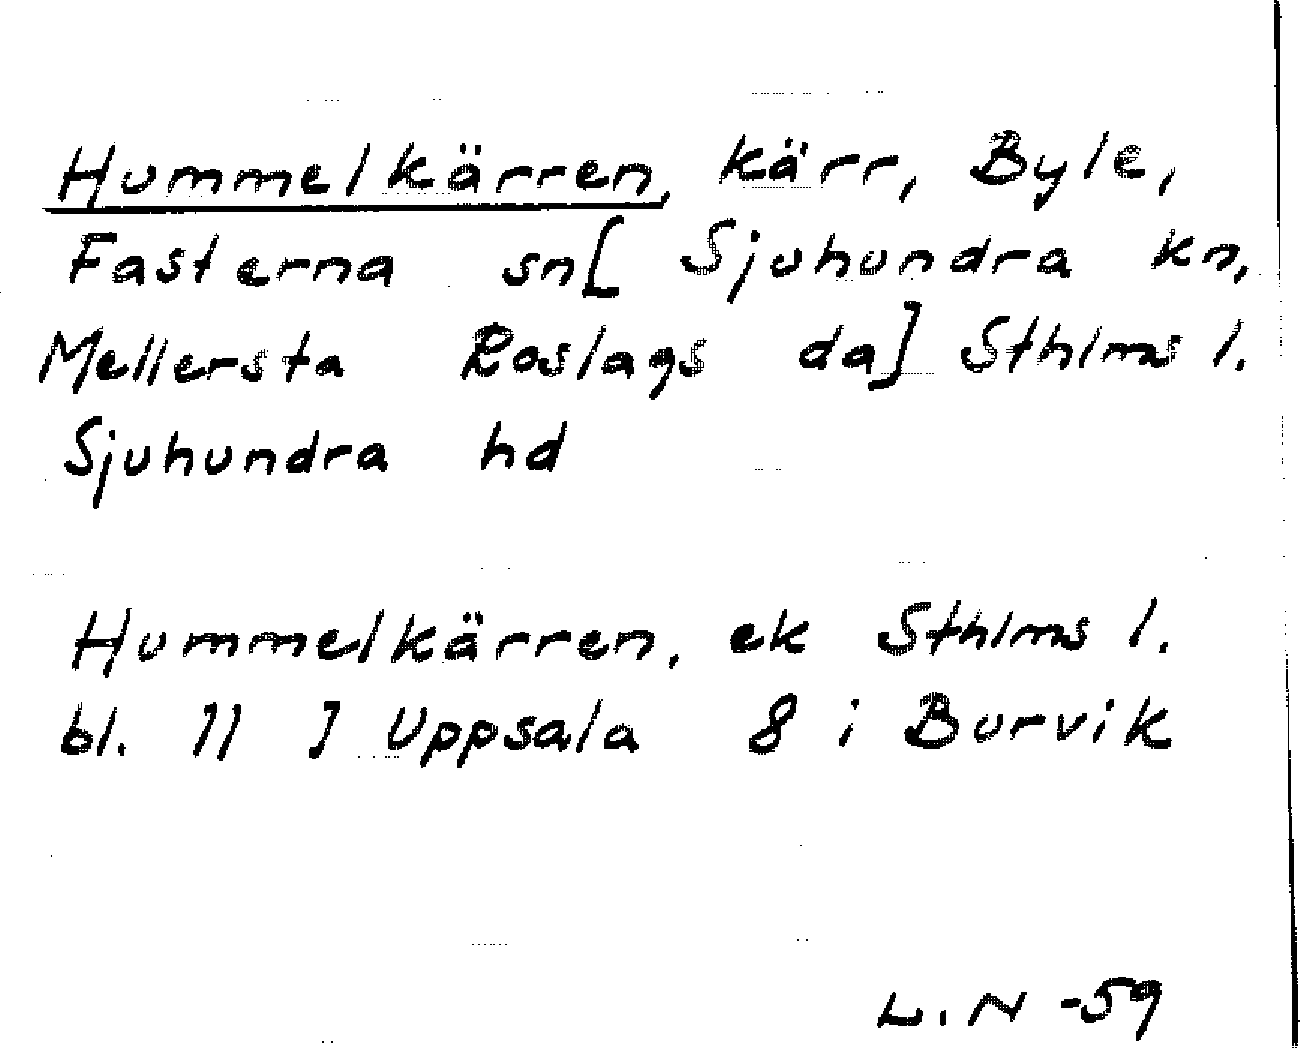 Hummelkärren, kärr, Byle,
Fasterna sn[ Sjuhundra kn,
Mellersta Roslags da] Sthlms l.
Sjuhundra hd
Hummelkärren, ek Sthlms l.
bl. 11 J Uppsala 8 i Burvik
L.N -59